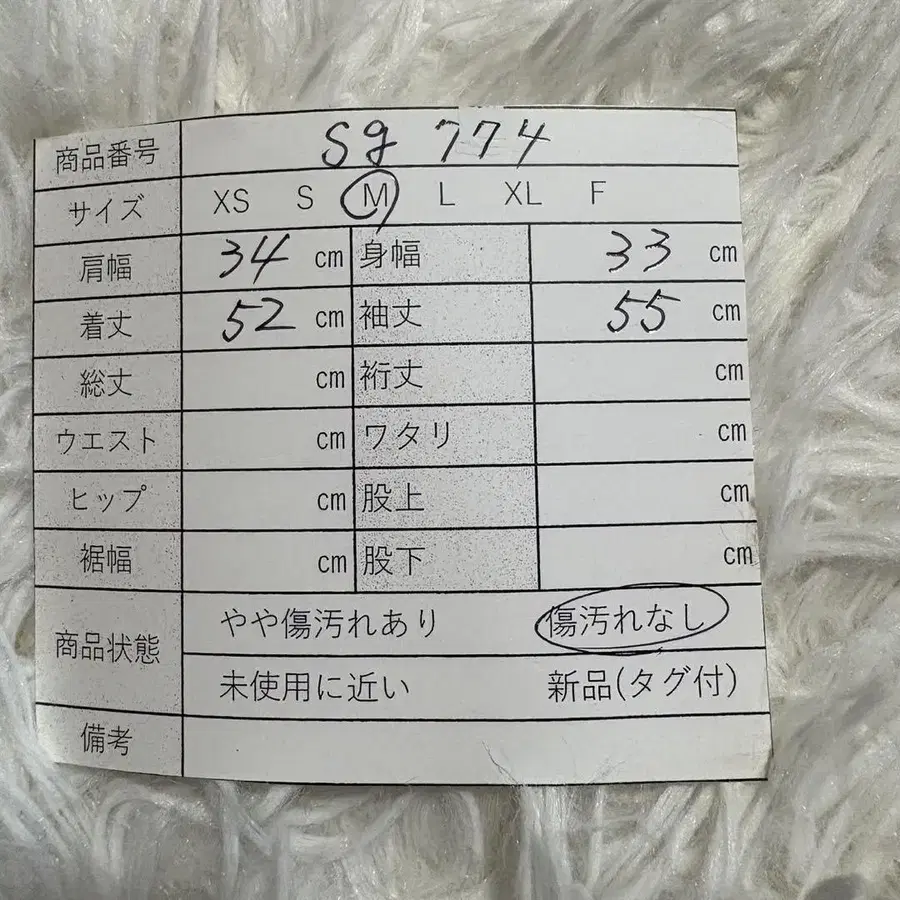 商品番号 sg 774
サイズ XS S M L XL F
肩幅 34 cm 身幅 33 cm
着丈 52 cm 袖丈 55 cm
総丈 cm 裄丈 cm
ウエスト cm ワタリ cm
ヒップ cm 股上 cm
裾幅 cm 股下 cm
商品状態 やや傷汚れあり 傷汚れなし
未使用に近い 新品(タグ付)
備考